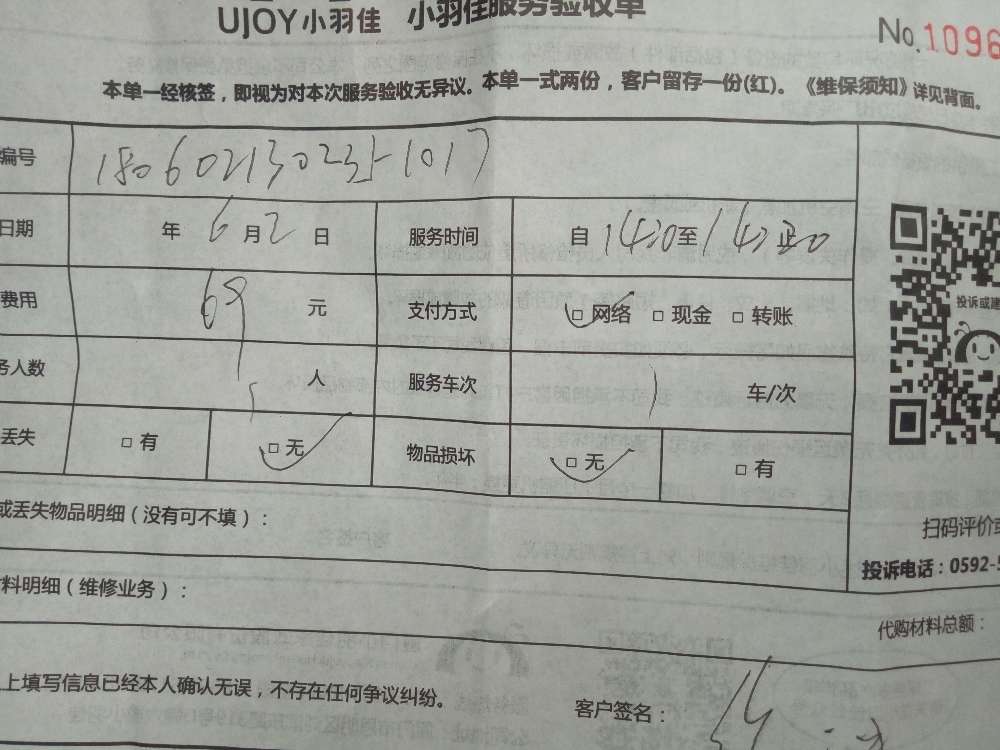 UJOY小羽佳 小羽佳服务验收单
No.1096
本单一经核签，即视为对本次服务验收无异议。本单一式两份，客户留存一份(红)。《维保须知》详见背面。
编号
日期 年 6 月 2 日 服务时间 自 14:20 至
费用 69 元 支付方式 □ 网络 □ 现金 □ 转账
务人数 1 人 服务车次 1 车/次
丢失 □ 有 □ 无 物品损坏 □ 无 □ 有
投诉或建
或丢失物品明细（没有可不填）：
扫码评价或
投诉电话：0592-5
料明细（维修业务）：
代购材料总额：
上填写信息已经本人确认无误，不存在任何争议纠纷。
客户签名：